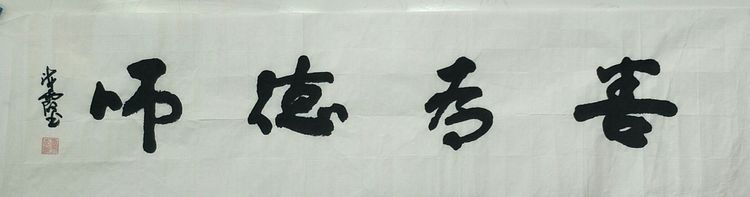 善为德师